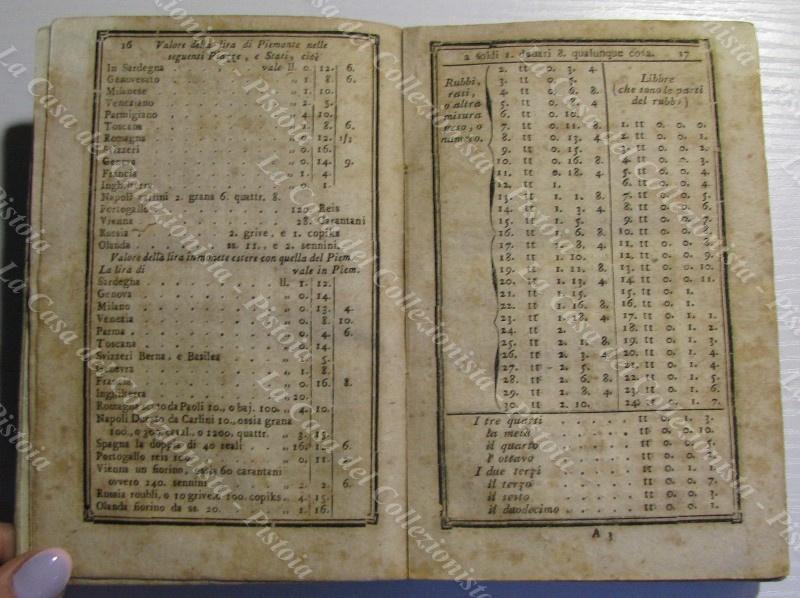 16 Valore della lira di Piemonte nelle
seguenti Piazze, e Stati, cioè
In Sardegna . . . vale ll. 0. 12. 6.
Genovesato . . . „ 1. 8. 6.
Milanese . . . „ 1. 10.
Veneziano . . . „ 2. 3.
Parmigiano . . . „ 4. 10.
Toscana . . . „ 1. 8. 6.
Romagna . . . „ 12. 1/3
Svizzeri . . . „ 0. 16.
Geneva . . . „ 0. 14. 9.
Francia . . . „ 1. 4.
Inghilterra . . . „ 0. 1.
Napoli carlini 2. grana 6. quattr. 8.
Portogallo . . . 120. Reis
Vienna . . . 28. Carantani
Russia . . . 2. grive, e 1. copiks
Olanda . . . ss. 11., e 2. sennini.
Valore della lira in monete estere con quella del Piem.
La lira di vale in Piem.
Sardegna . . . ll. 1. 12.
Genova . . . „ 0. 14.
Milano . . . „ 0. 13. 4.
Venezia . . . „ 0. 8. 10.
Parma . . . „ 0. 4. 6.
Toscana . . . „ 0. 14.
Svizzeri Berna, e Basilea „ 5.
Genevra . . . „ 1. 8.
Francia . . . „ 0. 16. 8.
Inghilterra . . . „ 20.
Romagna da Paoli 10., o baj. 100. „ 4. 10.
Napoli Ducato da Carlini 10., ossia grana
100., o 300. caval. o 1200. quattr. „ 3. 15.
Spagna la doppia di 40 reali „ 16. 1. 6.
Portogallo reis 100 . . . „ 0. 11.
Vienna un fiorino, ossia 60 carantani
ovvero 240. sennini . . . „ 2. 2. 6.
Russia roubli, o 10 grive, o 100. copiks „ 4. 15.
Olanda fiorino da ss. 20. . . . „ 1. 16.
2 soldi 1. danari 8. qualunque cosa. 17
Rubbi,
rasi,
o altra
misura
peso, o
numero.
2. tt 0. 3. 4.
3. tt 0. 5.
4. tt 0. 6. 8.
5. tt 0. 8. 4.
6. tt 0. 10.
7. tt 0. 11. 8.
8. tt 0. 13. 4.
9. tt 0. 15.
10. tt 0. 16. 8.
11. tt 0. 18. 4.
12. tt 1.
13. tt 1. 1. 8.
14. tt 1. 3. 4.
15. tt 1. 5.
16. tt 1. 6. 8.
17. tt 1. 8. 4.
18. tt 1. 10.
19. tt 1. 11. 8.
20. tt 1. 13. 4.
21. tt 1. 15.
22. tt 1. 16. 8.
23. tt 1. 18. 4.
24. tt 2.
25. tt 2. 1. 8.
26. tt 2. 3. 4.
27. tt 2. 5.
28. tt 2. 6. 8.
29. tt 2. 8. 4.
30. tt 2. 10.
Libbre
(che sono le parti
del rubb:)
1. tt 0. 0. 0.
2. tt 0. 0. 1.
3. tt 0. 0. 2.
4. tt 0. 0. 3.
5. tt 0. 0. 4.
6. tt 0. 0.
7. tt 0. 0.
8. tt 0. 0. 6.
9. tt 0. 0. 7.
10. tt 0. 0. 8.
11. tt 0. 0. 9.
12. tt 0. 0.
13. tt 0. 0. 10.
14. tt 0. 0. 11.
15. tt 0. 1.
16. tt 0. 1.
17. tt 0. 1. 1.
18. tt 0. 1. 2.
19. tt 0. 1. 3.
20. tt 0. 1. 4.
21. tt 0. 1. 4.
22. tt 0. 1. 5.
23. tt 0. 1. 6.
24. tt 0. 1. 7.
I tre quarti . . . tt 0. 1. 3.
la metà . . . tt 0. 0. 10.
il quarto . . . tt 0. 0. 5.
l' ottavo . . . tt 0. 0. 2.
I due terzi . . . tt 0. 1. 1.
il terzo . . . tt 0. 0. 7.
il sesto . . . tt 0. 0. 3.
il duodecimo . . . tt 0. 0. 1.
A 3
La Casa del Collezionista - Pistoia